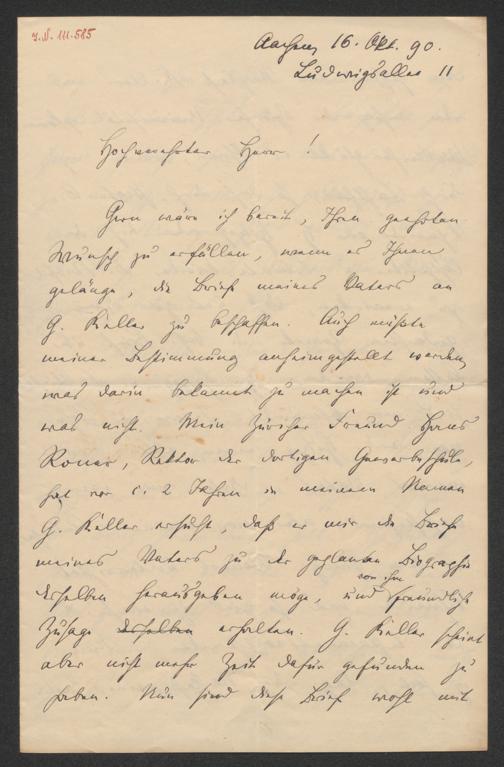 J.N. 111.585
Aachen 16. Okt. 90.
Ludwigsallee 11
Hochverehrter Herr!
Gern wäre ich bereit, Ihren geehrten
Wunsch zu erfüllen, wenn es Ihnen
gelänge, die Briefe meines Vaters an
G. Keller zu beschaffen. Auch müßte
meiner Bestimmung anheimgestellt werden,
was darin bekannt zu machen ist und
was nicht. Mein Züricher Freund Hans
Roner, Rektor der dortigen Gewerbeschule,
hat vor c. 2 Jahren in meinem Namen
G. Keller ersucht, daß er mir die Briefe
meines Vaters zu der geplanten Biographie
desselben herausgeben möge, und von ihm freundliche
Zusage desselben erhalten. G. Keller scheint
aber nicht mehr Zeit dafür gefunden zu
haben. Nun sind diese Briefe wohl mit